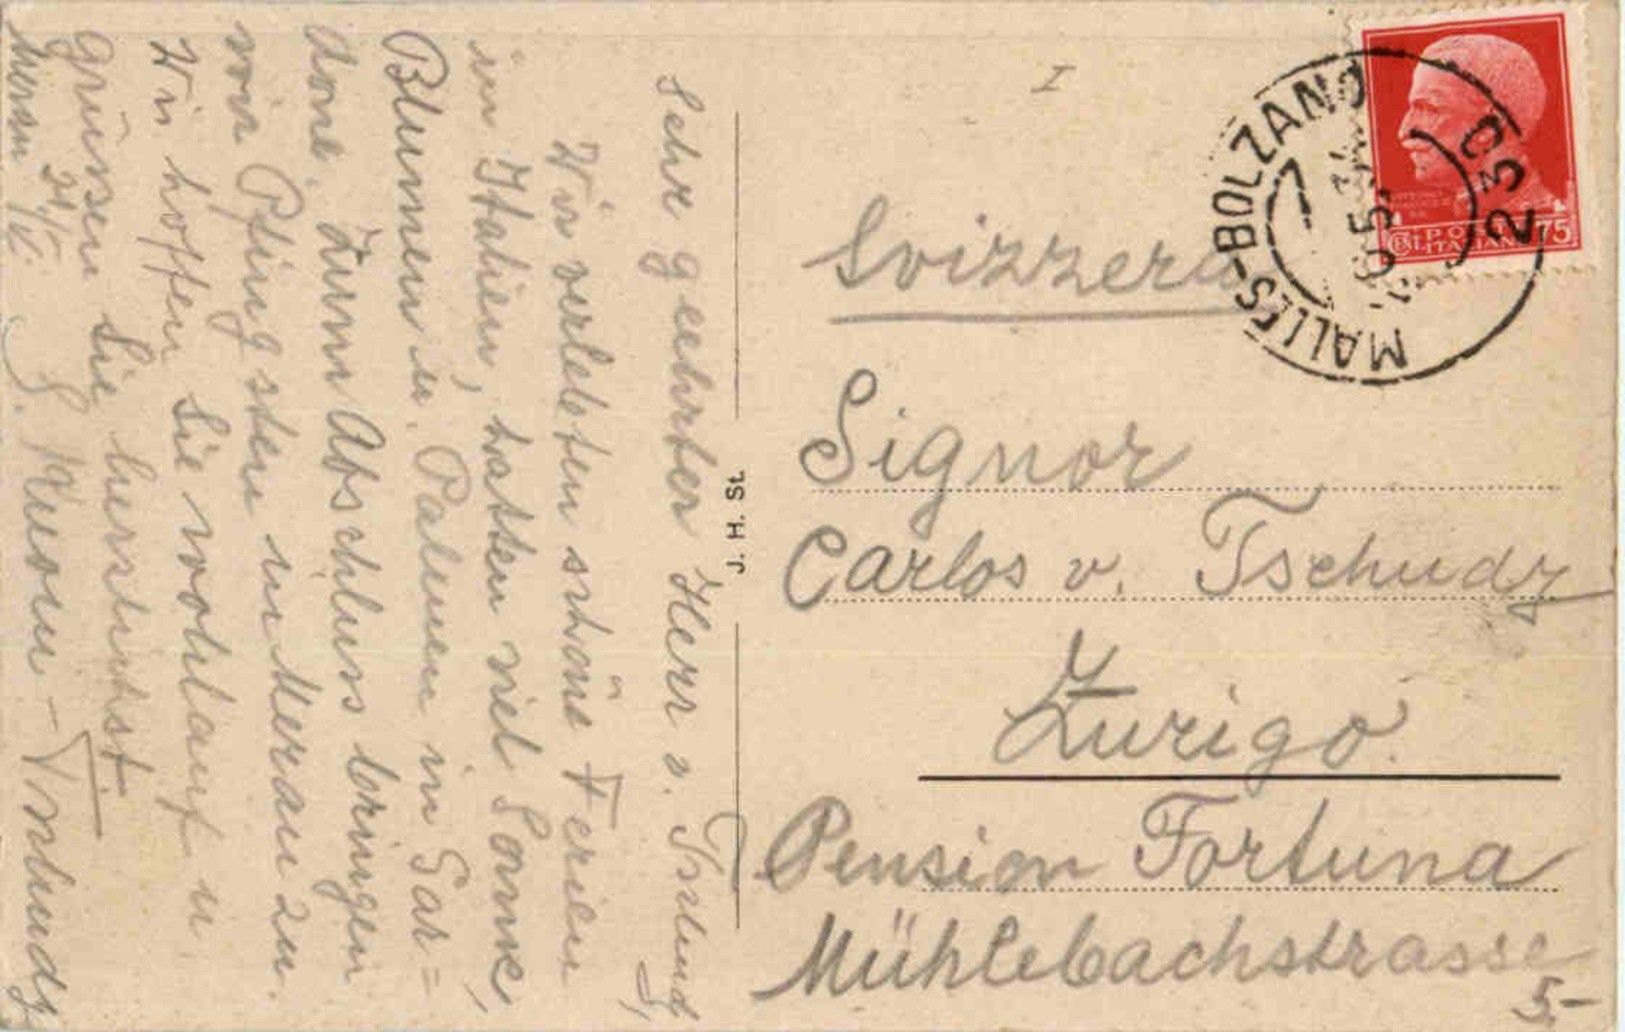 Sehr geehrter Herr v. Tschudy,
Wir verlebten schöne Ferien
in Italien, hatten viel Sonne,
Blumen u. Palmen in Gar=
done. Zum Abschluss bringen
wir Pfingsten in Meran zu.
Wir hoffen Sie wohlauf u.
grüssen Sie herzlichst.
Meran 21/V. S. Kuoni-Tschudy
J. H. St.
I
MALLES-BOLZANO
20.5.34
230
POSTE ITALIANE
75
Svizzera
Signor
Carlos v. Tschudy
Zurigo.
Pension Fortuna
Mühlebachstrasse
5.-